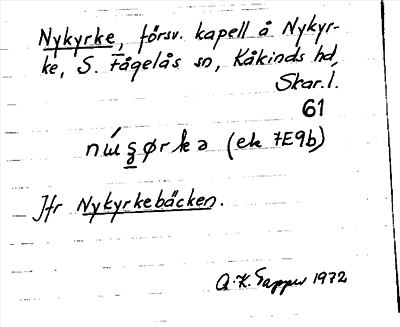 Nykyrke, försv. kapell å Nykyr-
ke, S. Fågelås sn, Kåkinds hd,
Skar. l.
61
(ek 7E9b)
Jfr Nykyrkebäcken.
1972